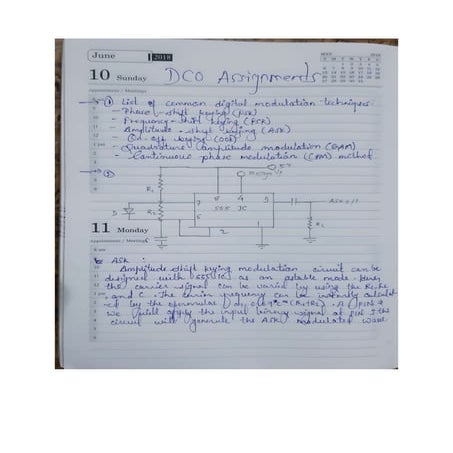 June 2018
10 Sunday
DCO Assignments
Appointment / Meetings
① List of common digital modulation techniques
- Phase-shift keying (PSK)
- Frequency-shift keying (FSK)
- Amplitude-shift keying (ASK)
- On-off keying (OOK)
- Quadrature amplitude modulation (QAM)
- Continuous phase modulation (CPM) method
②
5V
R1
7 8 4 3
D R2 555 IC
5 2 1
C
11 Monday
Appointment / Meetings
ASK :
Amplitude shift keying modulation circuit can be
designed with 555 IC as an astable mode. Here,
the carrier signal can be varied by using the R1, R2
and C. The carrier frequency can be instantly
by the formula
We will apply the input binary signal at PIN the
circuit will generate the ASK modulated wave